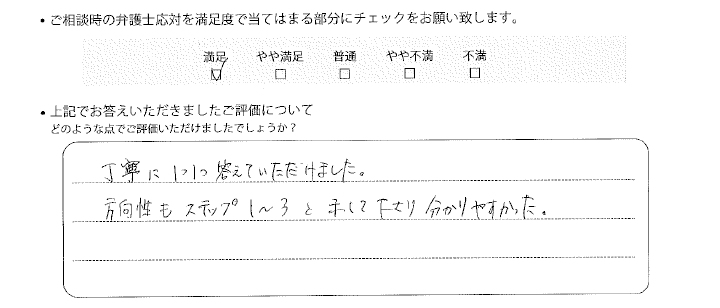 • ご相談時の弁護士応対を満足度で当てはまる部分にチェックをお願い致します。
満足 やや満足 普通 やや不満 不満
☑ □ □ □ □
• 上記でお答えいただきましたご評価について
どのような点でご評価いただけましたでしょうか？
丁寧に1つ1つ答えていただけました。
方向性もステップ1〜3と示して下さり分かりやすかった。